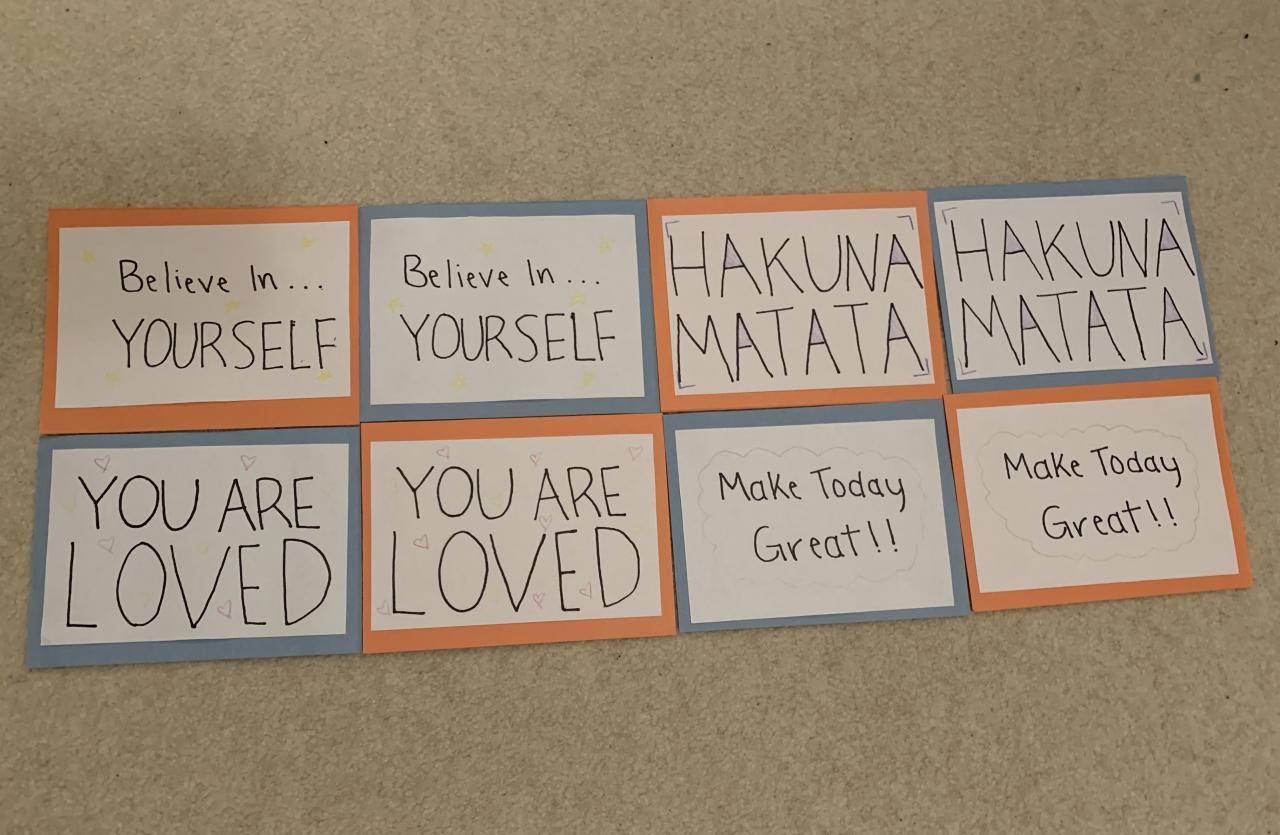 Believe In...
YOURSELF
Believe In...
YOURSELF
HAKUNA
MATATA
HAKUNA
MATATA
YOU ARE
LOVED
YOU ARE
LOVED
Make Today
Great!!
Make Today
Great!!